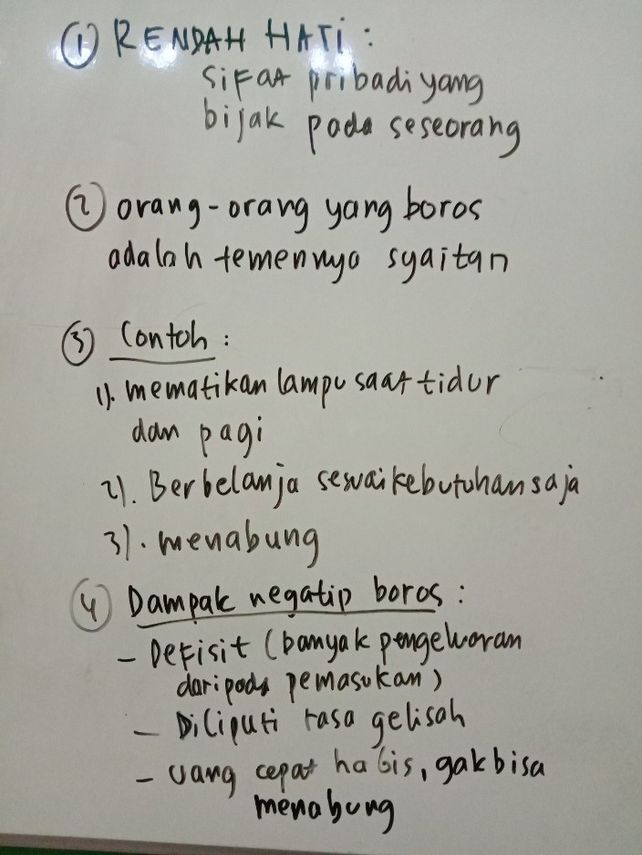 ① RENDAH HATI :
SIFAT pribadi yang
bijak pada seseorang
② orang-orang yang boros
adalah temennya syaitan
③ Contoh :
1). mematikan lampu saat tidur
dan pagi
2). Berbelanja sesuai kebutuhan saja
3). menabung
④ Dampak negatip boros :
- Defisit (banyak pengeluaran
daripada pemasukan)
- Diliputi rasa gelisah
- uang cepat habis, gak bisa
menabung